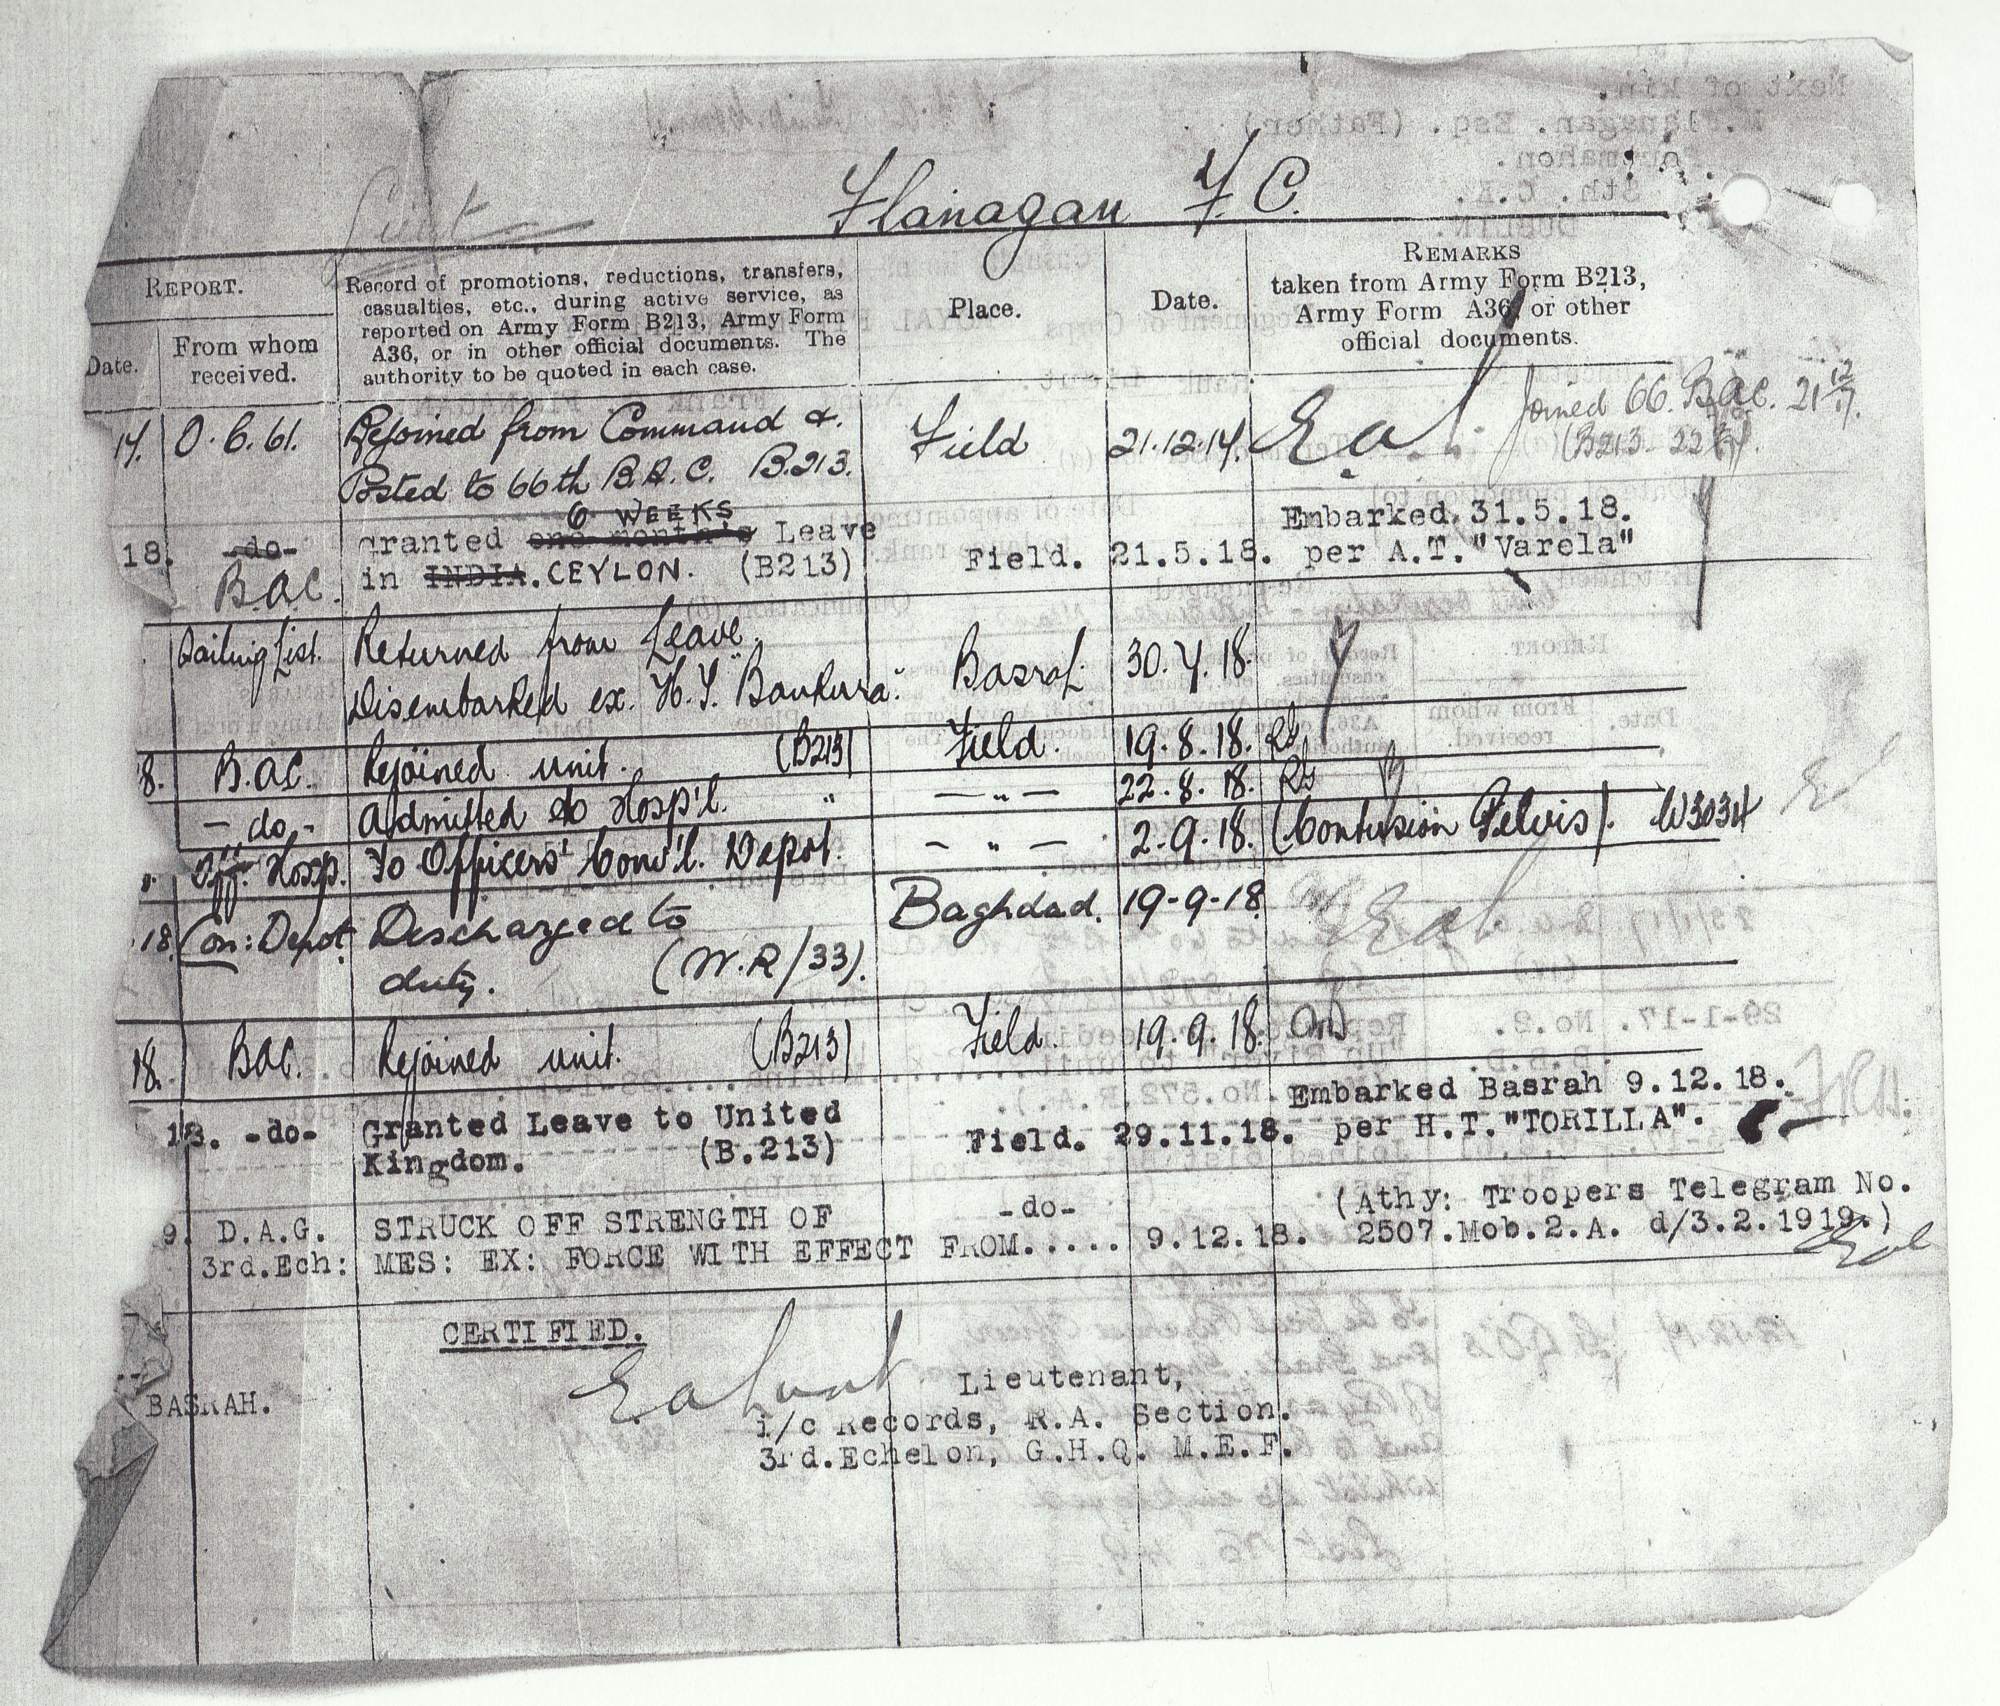 Lieut
Flanagan F. C.
REPORT.
Date.
From whom
received.
Record of promotions, reductions, transfers,
casualties, etc., during active service, as
reported on Army Form B213, Army Form
A36, or in other official documents. The
authority to be quoted in each case.
Place.
Date.
REMARKS
taken from Army Form B213,
Army Form A36, or other
official documents.
17. O.C.61. Rejoined from Command &
Posted to 66th B.A.C. B.213.
Field 21.12.17.
Joined 66. BAC. 21/12/17.
(B213
18. -do-
B.A.C.
6 WEEKS
Granted one month's Leave
in INDIA. CEYLON. (B213)
Field. 21.5.18.
Embarked, 31.5.18.
per A.T. "Varela"
Sailing List. Returned from Leave.
Disembarked ex. H.T. "Bankura".
Basrah 30.7.18.
8. B.A.C. Rejoined unit. (B213) Field. 19.8.18.
- do - Admitted to Hosp'l. " — " — 22.8.18.
Off. Hosp. To Officers' Conv'l. Depot. — " — 2.9.18. (Contusion Pelvis). W3034
18 Con: Depot Discharged to
duty. (W.R/33).
Baghdad. 19-9-18
18. BAC. Rejoined unit. (B213) Field. 19.9.18.
18. -do- Granted Leave to United
Kingdom. (B.213)
Field. 29.11.18.
Embarked Basrah 9.12.18.
per H.T. "TORILLA".
9. D.A.G.
3rd.Ech:
STRUCK OFF STRENGTH OF
MES: EX: FORCE WITH EFFECT FROM.....
-do-
9.12.18.
(Athy: Troopers Telegram No.
2507.Mob.2.A. d/3.2.1919.)
CERTIFIED.
BASRAH.
Lieutenant,
i/c Records, R.A. Section.
3rd.Echelon, G.H.Q. M.E.F.